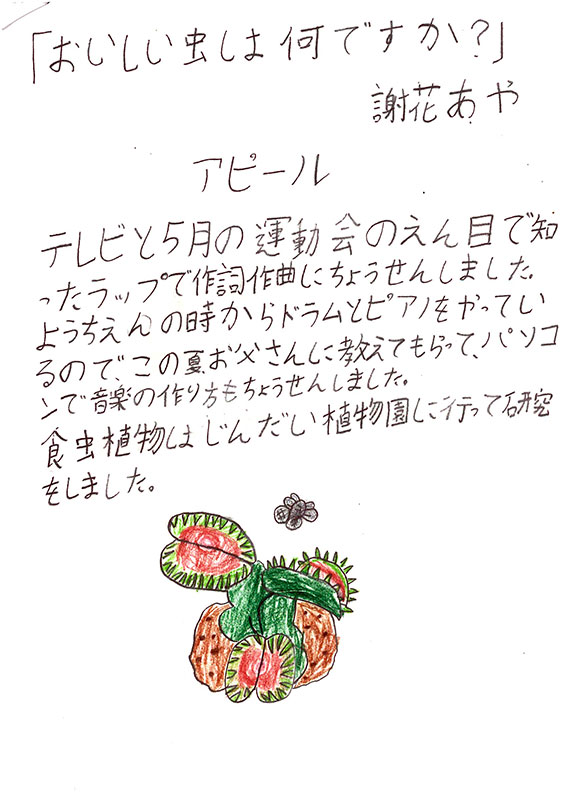 「おいしい虫は何ですか？」
謝花あや
アピール
テレビと5月の運動会のえん目で知
ったラップで作詞作曲にちょうせんしました。
ようちえんの時からドラムとピアノをやってい
るので、この夏、お父さんに教えてもらって、パソコ
ンで音楽の作り方もちょうせんしました。
食虫植物はじんだい植物園に行って研究
をしました。